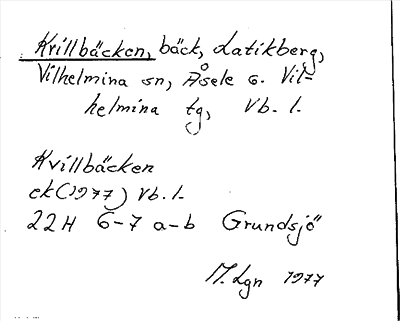 Krillbäcken, bäck, Latikberg,
Vilhelmina sn, Åsele o. Vil-
helmina tg, Vb. l.
Kvillbäcken
ek (1977) Vb. l.
22H 6-7 a-b Grundsjö
M. Lgn 1977